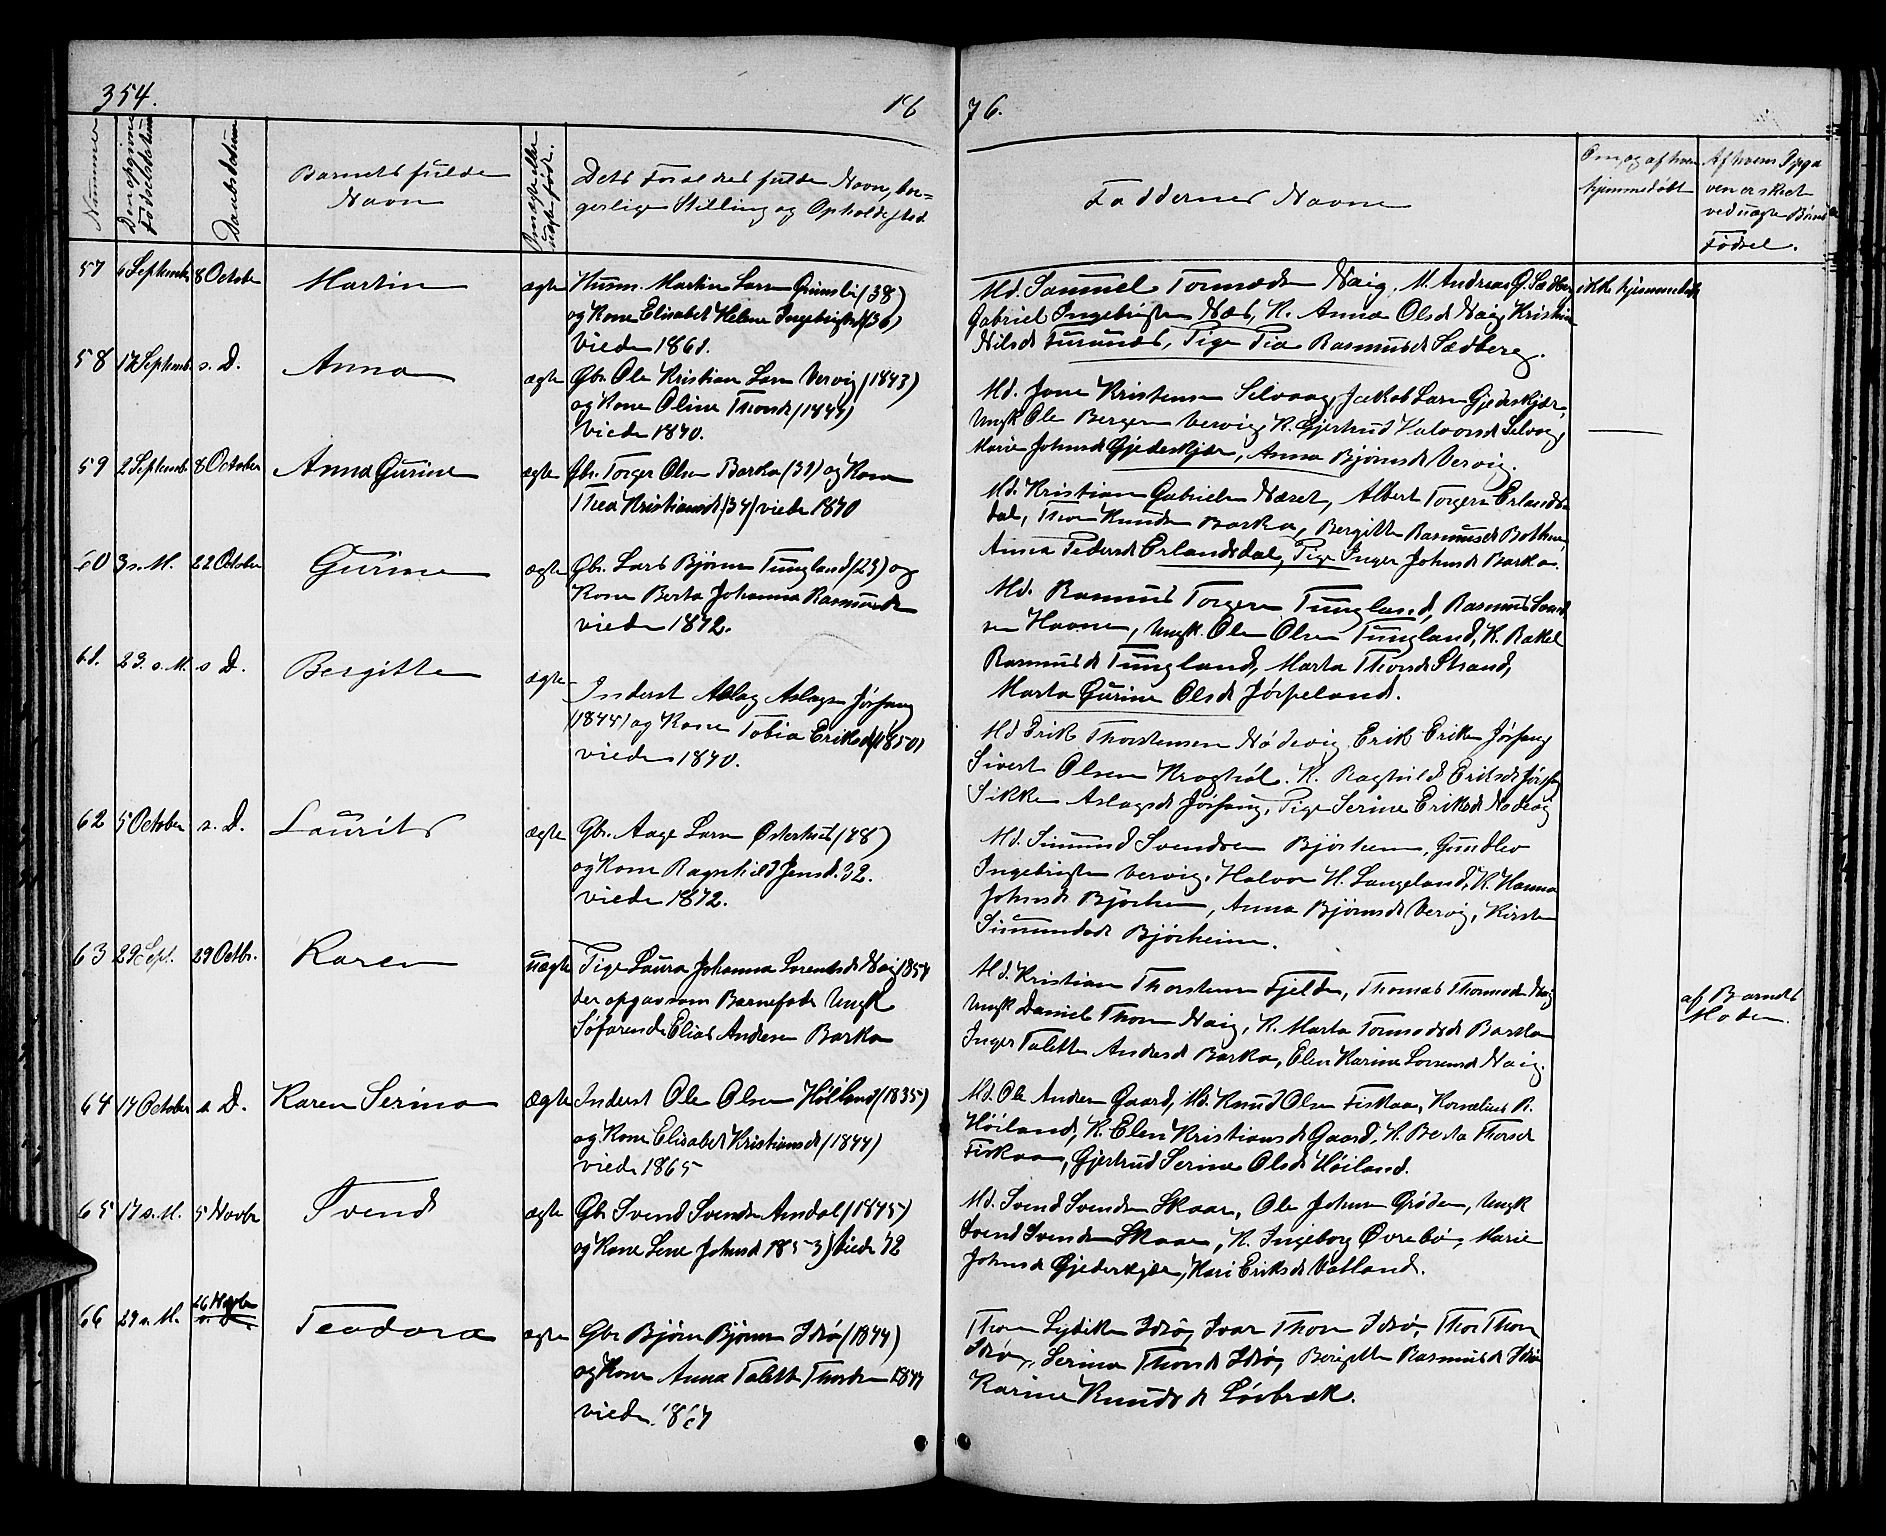 354.
18
76.
Nummer
Den opgivne
Fødselsdatum
Daabsdatum
Barnets fulde
Navn
Om ægte eller
uægte født.
Dets Forældres fulde Navn, bor-
gerlige Stilling og Opholdssted.
Faddernes Navne
Om, og af hvem
hjemmedøbt
Af hvem Opga
ven er skeet
ved uægte Børns
Fødsel.
57 6 Septembr 8 October Martin ægte Husm. Martin Larsen Grimsli (38)
og Kone Elisabet Helene Ingebrigtsd (36)
viede 1861.
Md. Samuel Tormodsen Naig, M. Andreas G. Sædberg
Gabriel Ingebrigtsen Næs, K. Anna Olsd Naig, Kristine
Nilsd Furunæs, Pige Pia Rasmusd Sædberg.
ikke hjemmedøbt
58 12 Septembr s. D. Anna ægte Gbr. Ole Kristian Larsen Vervig (1843)
og Kone Oline Thorsd (1844)
viede 1870.
Md. Jone Kristensen Selvaag, Jakob Larsen Gjedeskjær,
Ungk Ole Bergersen Vervig, K. Gjertrud Halvorsd Selvaag
Marie Johnsd Gjedeskjær, Anna Bjørnsd Vervig.
59 2 Septembr 8 October Anna Gurine ægte Gbr. Torger Olsen Barka (31) og Kone
Thea Kristiansd (34) viede 1870
Md. Kristian Gabrielsen Næset, Albert Torgersen Erlands
dal, Thore Knudsen Barka, Bergitte Rasmusd Bothne,
Anna Pedersd Erlandsdal, Pige Inger Johnsd Barka.
60 3 s. M. 22 October Gurine ægte Gbr. Lars Bjørnsen Tungland (29) og
Kone Berta Johanna Rasmusdr
viede 1872.
Md. Rasmus Torgersen Tungland, Rasmus Svend
sen Havne, Ungk. Ole Olsen Tungland, K. Rakel
Rasmusd Tungland, Marta Thorsd Strand,
Marta Gurine Olsd Jørpeland.
61. 23. s. M. s D. Bergitte ægte Inderst Aslag Aslagsen Jøsang
(1845) og Kone Tobia Eriksd (1850)
viede 1870.
Md Erik Thorstensen Nødevig, Erik Eriksen Jøsang
Sivert Olsen Kroghøl. K. Ragnild Eriksd Jøsang
Sikke Aslagsd Jøsang, Pige Serine Eriksd Nødvig
62 5 October s. D. Laurits ægte Gbr. Aage Larsen Østerhus (28)
og Kone Ragnhild Jensd. 32.
viede 1872.
Md. Simund Svendsen Bjørheim, Gundlev
Ingebrigtsen Vervig, Halvor H. Langeland, K. Hanna
Johnsd Bjørheim, Anna Bjørnsd Vervig, Kirsten
Simundsd Bjørheim.
63 29 Sept. 29 Octbr. Karen uægte Pige Laura Johanna Lorentsd Naig 1854
der opgav som Barnefader Ungk
Søfarende Elias Andersen Barka
Md. Kristian Thorstensen Fjelde, Thomas Thormodsen Naig
Ungk Daniel Thorsen Naig, K. Marta Tormodsd Barka
Inger Talette Andersd Barka, Elen Karine Lorensd Naig.
af Barnets
Moder.
64 17 October s. D. Karen Serina Ægte Inderst Ole Olsen Høiland (1835)
og Kone Elisabet Kristiansd (1844)
viede 1865
Md. Ole Andersen Gaard, Md. Knud Olsen Fiskaa, Kornelius R.
Høiland, K. Elen Kristiansd Gaard, K. Berta Thorsd
Fiskaa, Gjertrud Serine Olsd Høiland.
65 17 s. M. 5 Novbr Svend ægte Gbr Svend Svendsen Amdal (1845)
og Kone Lene Johnsd 1853) viede 72
Md. Svend Svendsen Skaar, Ole Johnsen Grøden, Ungk
Svend Svendsen Skaar, K. Ingeborg Øvrebø, Marie
Johnsd Gjedeskjær, Kari Eriksd Vatland.
66 29 s. M. 26 Novbr Teodora ægte Gbr Bjørn Bjørnsen Idsø (1844)
og Kone Anna Talette Thorsdr 1844
viede 1867
Thore Lydiksen Idsø, Ivar Thorsen Idsø, Thor Thorsen
Idsø, Serina Thorsd Idsø, Bergitte Rasmusd Idsø
Karine Knudsd Løsbræk.